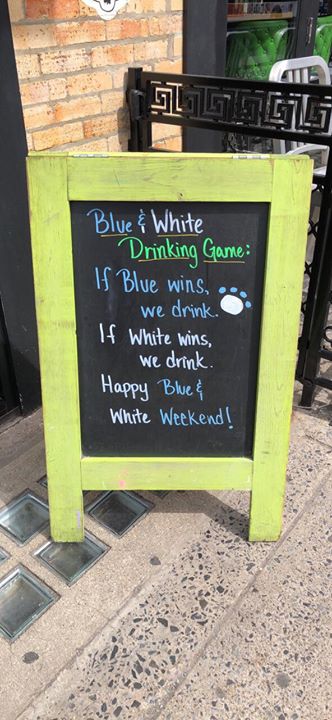 Blue & White
Drinking Game:
If Blue wins,
we drink.
If White wins,
we drink.
Happy Blue &
White Weekend!